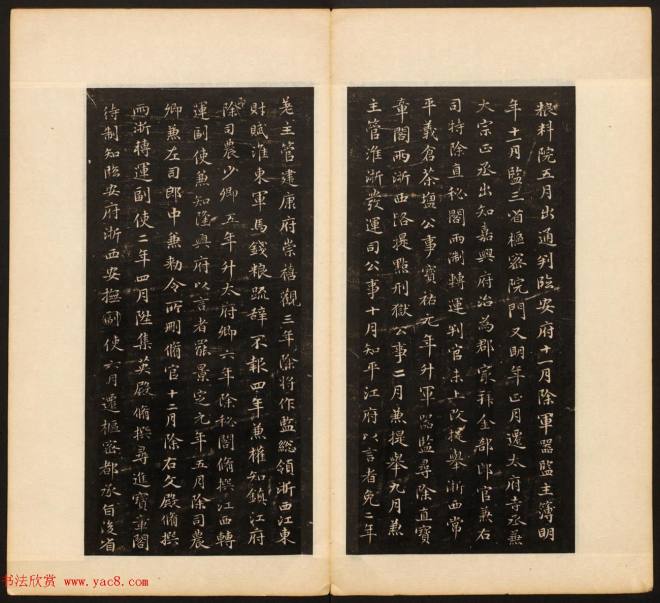 粮料院五月出通判臨安府十一月除軍器監主簿明
年十一月監三省樞密院門又明年正月遷太府寺丞兼
大宗正丞出知嘉興府治為郡寂拜金部郎官兼右
司特除直秘閣兩淛轉運判官未上改提舉浙西常
平義倉茶鹽公事寶祐元年升軍器監尋除直寶
章閣兩浙西路提點刑獄公事二月兼提舉九月兼
主管淮浙發運司公事十月知平江府以言者免二年
差主管建康府崇禧觀三年除將作監總領浙西江東
財賦淮東軍馬錢粮疏辭不報四年兼權知鎮江府
除司農少卿五年升太府卿六年除秘閣脩撰江西轉
運副使兼知隆興府以言者罷景定元年五月除司農
卿兼左司郎中兼勑令所刪脩官十二月除右文殿脩撰
兩浙轉運副使二年四月陞集英殿脩撰尋進寶章閣
待制知臨安府浙西安撫副使六月遷樞密都承旨復省
书法欣赏 www.yac8.com